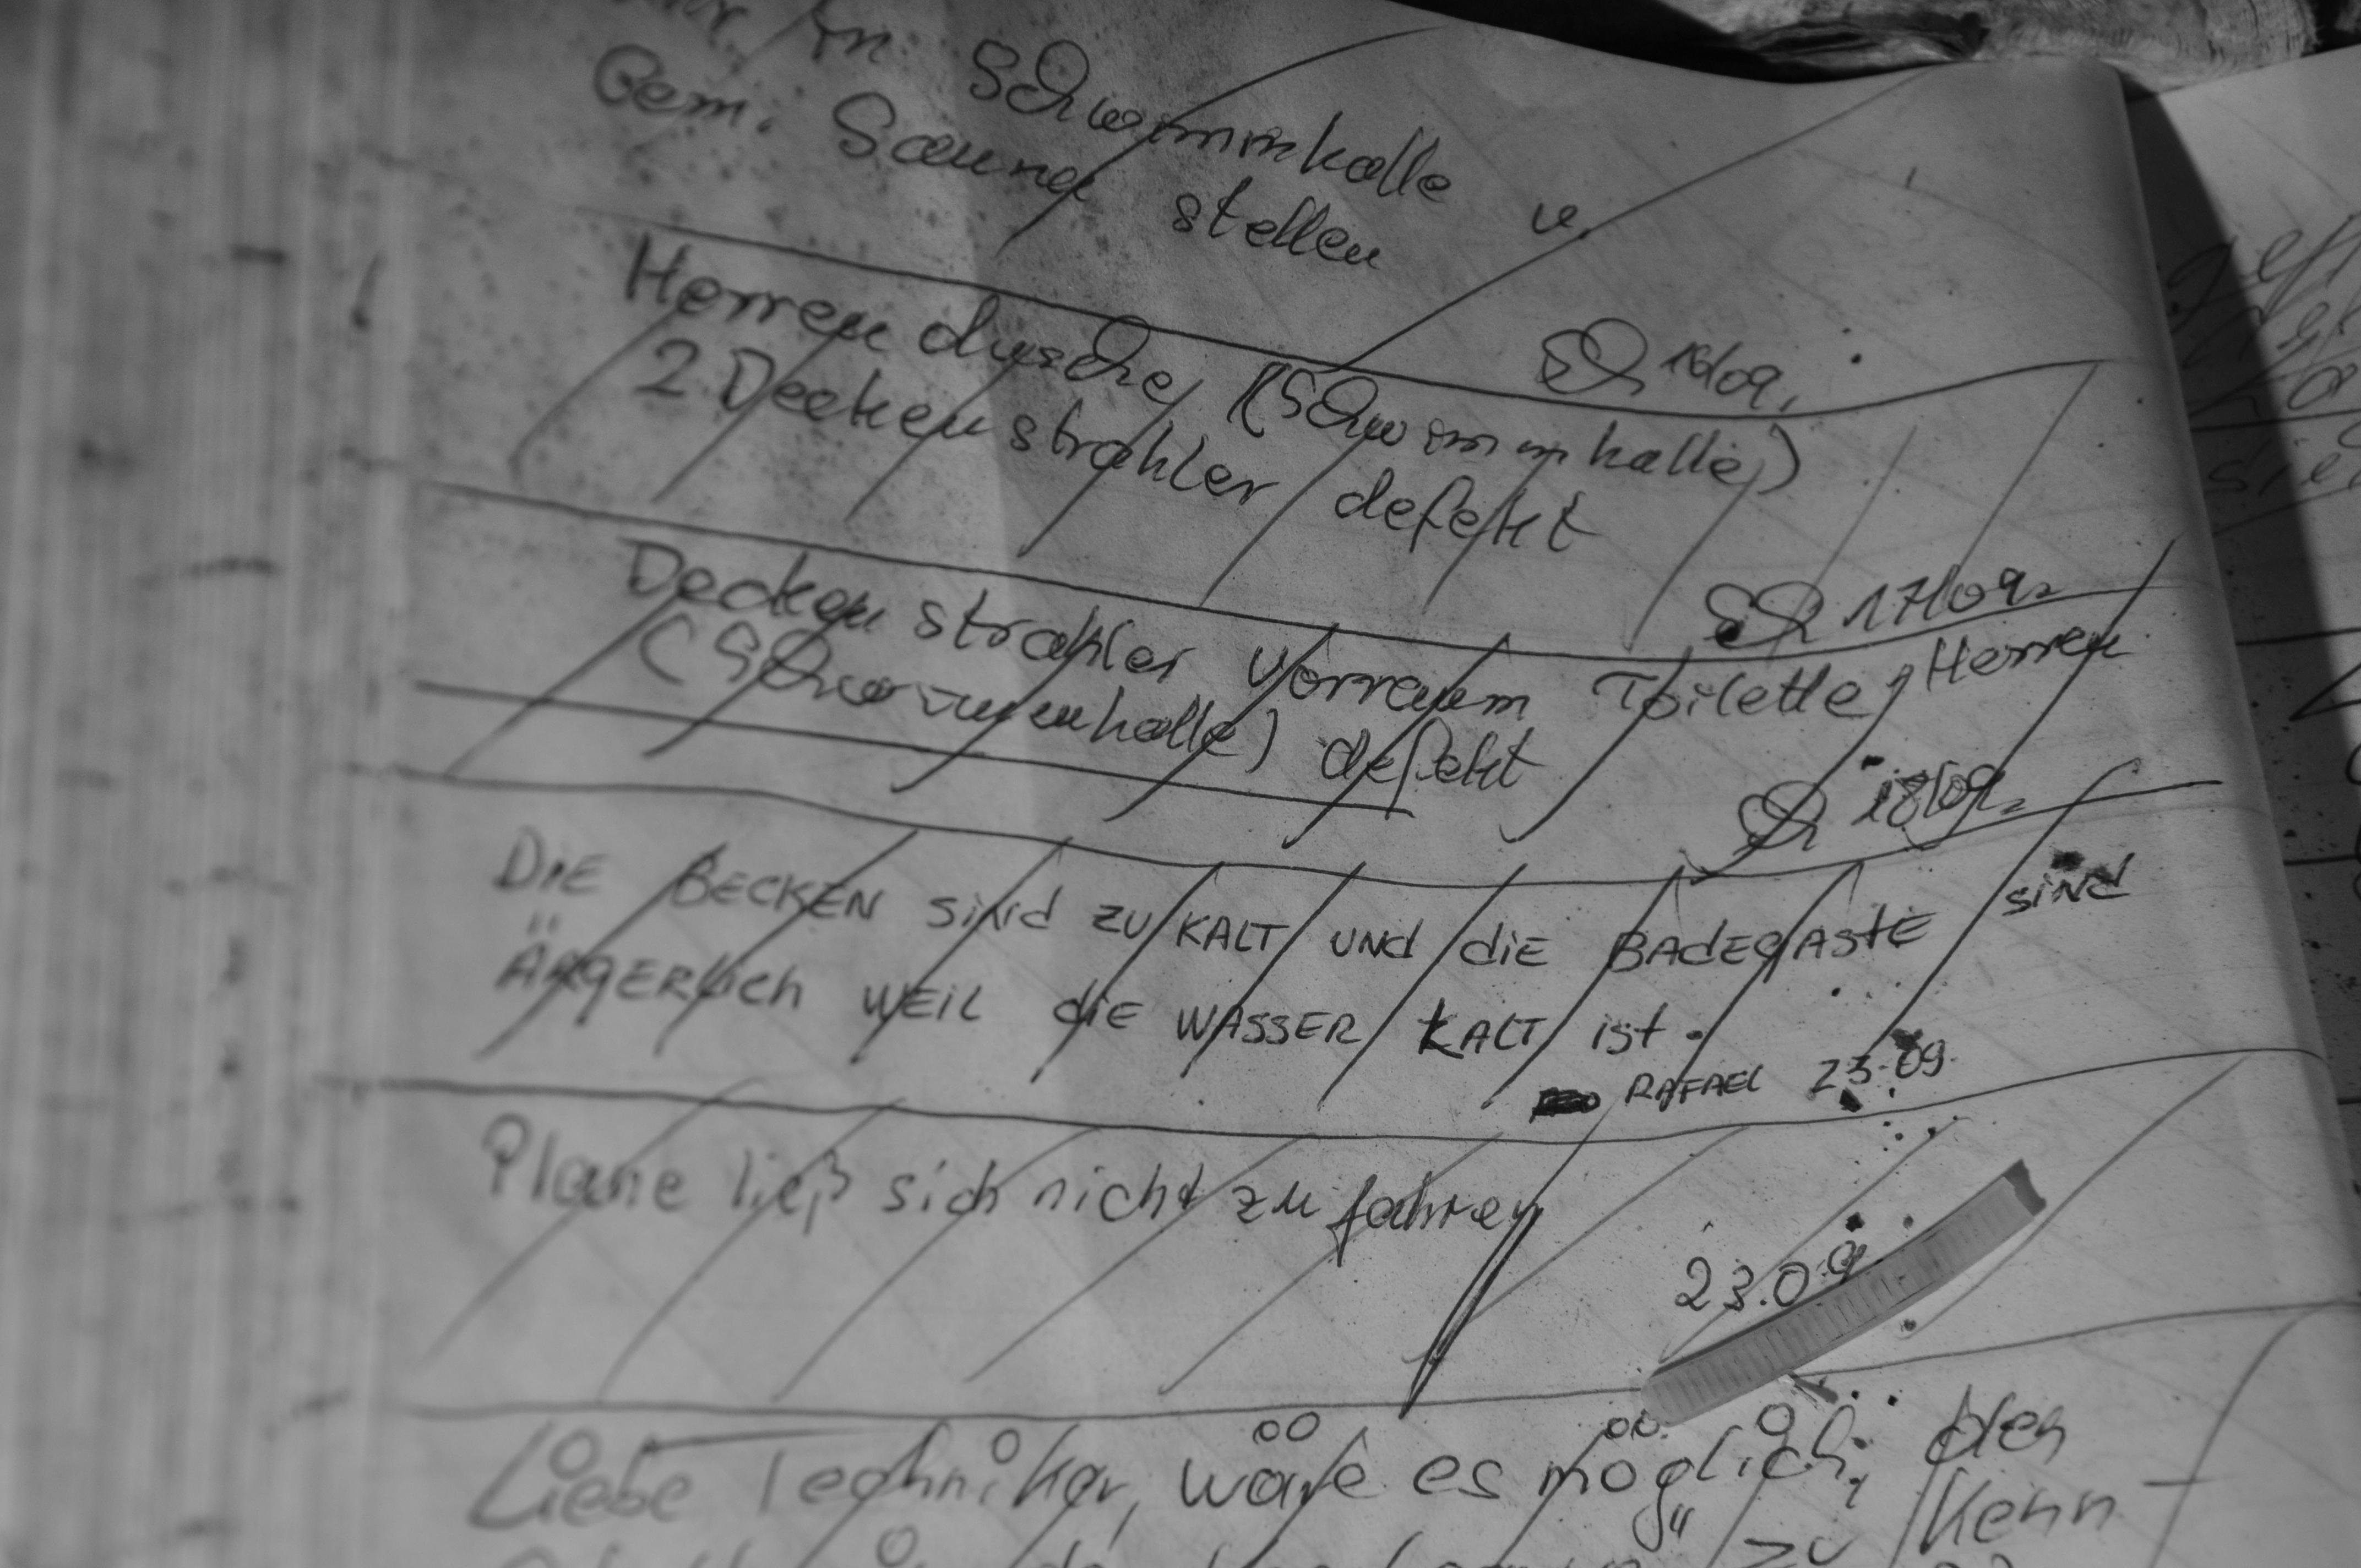 in Schwimmhalle u.
Gem. Sauna stellen
16/09.
Herrendusche (Schwimmhalle)
2 Deckenstrahler defekt
17/09.
Deckenstrahler Vorraum Toilette, Herren
(Schwimmhalle) defekt
18/09.
DiE BECKEN siNd ZU KALT UNd diE BADEGASTE siNd
ÄRGERLich WEiL diE WASSER KALT ist.
RAFAEL 23.09.
Plane ließ sich nicht zu fahren
23.09
Liebe Techniker, wäre es möglich, den
zu Kenn